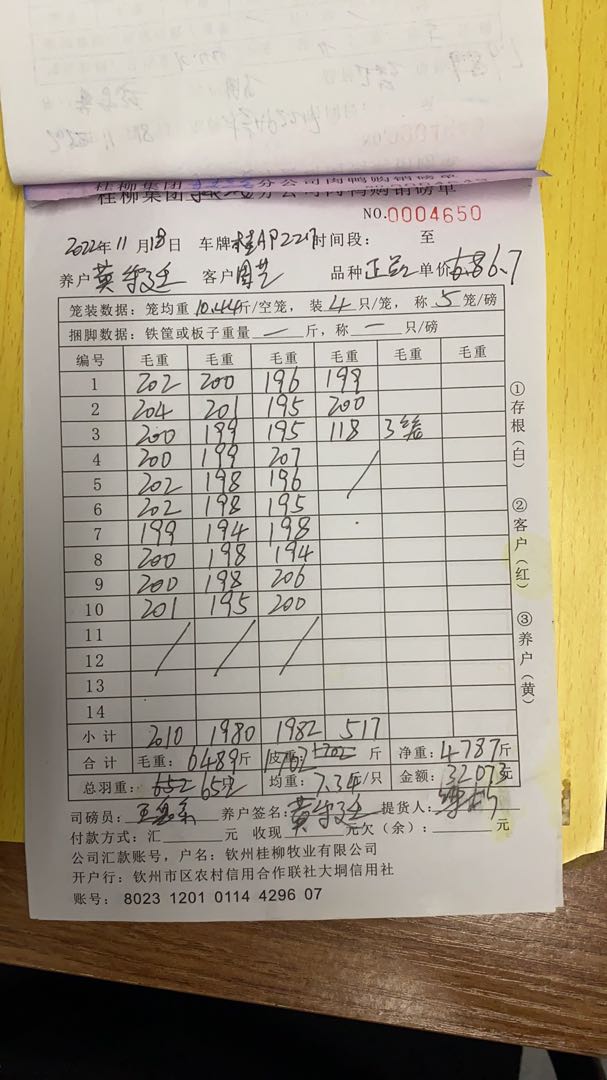 桂柳集团 分公司肉鸭购销磅单
NO.0004650
2022年11月18日 车牌桂AP2217时间段： 至
养户 黄 客户 周 品种 正品 单价6.8 6.7
笼装数据：笼均重10.44斤/空笼，装4只/笼，称5笼/磅
捆脚数据：铁筐或板子重量 — 斤，称 — 只/磅
编号 毛重 毛重 毛重 毛重 毛重 毛重
1 202 200 196 199
2 204 201 195 200
3 200 199 195 118 3笼
4 200 199 207
5 202 198 196
6 202 198 195
7 199 194 198
8 200 198 194
9 200 198 206
10 201 195 200
11
12
13
14
小计 2010 1980 1982 517
合计 毛重：6489斤 皮重：1702 斤 净重：4787斤
总羽重：652 652只 均重：7.34斤/只 金额：32073元
司磅员： 养户签名：黄 提货人：
付款方式：汇 元 收现 元欠（余）： 元
公司汇款账号，户名：钦州桂柳牧业有限公司
开户行：钦州市区农村信用合作联社大垌信用社
账号：8023 1201 0114 4296 07
①存根（白）
②客户（红）
③养户（黄）